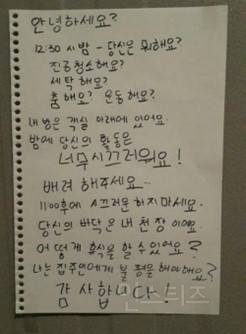 안녕하세요?
12:30 시 밤 - 당신은 뭐해요?
진공청소해요?
세탁해요?
춤해요? 운동해요?
내 방은 객실 아래에 있어요.
밤에 당신의 활동은
너무시끄러워요!
배려 해주세요..
11:00후에 시끄러운 하지마세요.
당신의 바닥은 내 천장이에요.
어떻게 휴식을 할 수 있어요?
나는 집주인에게 불평을 해야해요?
감사합니다!
인스티즈